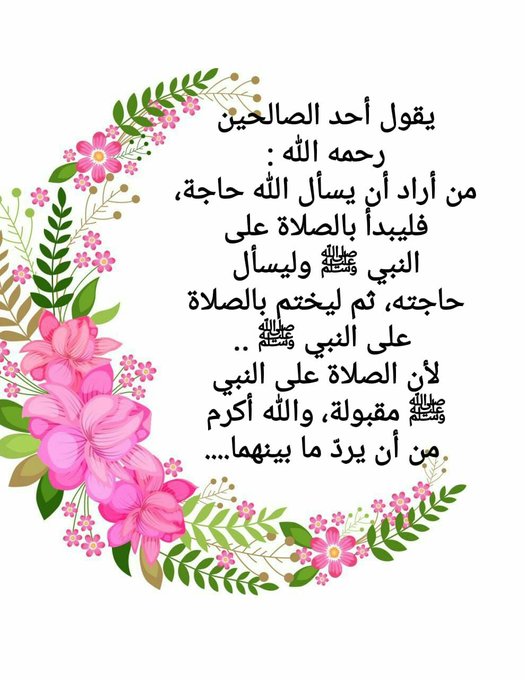 يقول أحد الصالحين
رحمه الله :
من أراد أن يسأل الله حاجة،
فليبدأ بالصلاة على
النبي ﷺ وليسأل
حاجته، ثم ليختم بالصلاة
على النبي ﷺ ..
لأن الصلاة على النبي
ﷺ مقبولة، والله أكرم
من أن يردّ ما بينهما....